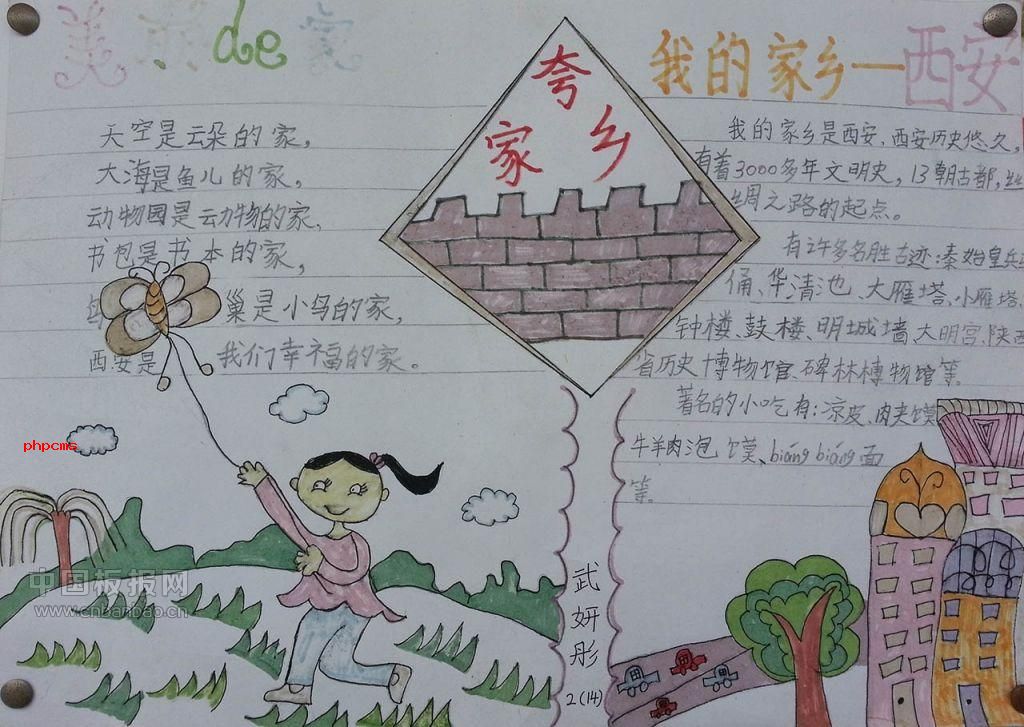 美丽de家
天空是云朵的家，
大海是鱼儿的家，
动物园是动物的家，
书包是书本的家，
巢是小鸟的家，
西安是我们幸福的家。
夸
家乡
我的家乡—西安
我的家乡是西安，西安历史悠久，
有着3000多年文明史，13朝古都，丝
绸之路的起点。
有许多名胜古迹：秦始皇兵马
俑、华清池、大雁塔、小雁塔、
钟楼、鼓楼、明城墙、大明宫、陕西
省历史博物馆、碑林博物馆等。
著名的小吃有：凉皮、肉夹馍、
牛羊肉泡馍、biángbiáng面
等。
武妍彤
2(14)
phpcms
中国板报网
www.cnbanbao.cn